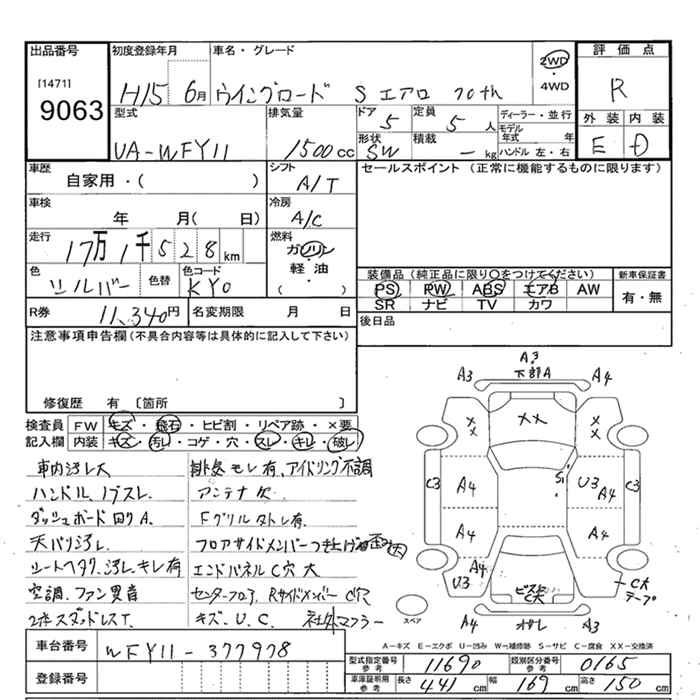 出品番号
[1471]
9063
初度登録年月
H15 6月
車名・グレード
ウイングロード S エアロ 70th
2WD
・
4WD
評価点
R
外装 内装
E D
型式
UA-WFY11
排気量
1500cc
ドア
5
定員
5人
形状
SW
積載
-kg
ディーラー・並行
モデル年式 年
ハンドル左・右
車歴
自家用・( )
シフト
A/T
セールスポイント (正常に機能するものに限ります)
車検
年 月( 日)
冷房
A/C
走行
17万1千528km
燃料
ガソリン
・
軽油
( )
色
シルバー
色替
色コード
KY0
装備品 (純正品に限り○をつけてください)
PS PW ABS エアB AW
SR ナビ TV カワ
新車保証書
有・無
R券 11,340円
名変期限 月 日
後日品
注意事項申告欄(不具合内容等は具体的に記入して下さい)
修復歴 有 〔箇所 〕
検査員記入欄
FW キズ・飛石・ヒビ割・リペア跡・×要
内装 キズ・汚レ・コゲ・穴・スレ・キレ・破レ
車内汚レ大
ハンドル、ノブスレ.
ダッシュボード回りA.
天バリ汚レ.
シートヘタリ、汚レ、キレ有
空調.ファン異音
2本スタッドレスT.
排気モレ有、アイドリング不調
アンテナ欠
Fグリルタトレ有.
フロアサイドメンバーつき上げ歪み(大)
エンドパネルC穴大
センターフロア、RサイドメンバーC穴
キズ、U、C. 社外マフラー
A3
下部A
A3 A4
×× ×× ××
C3 A4 S1 U3 A4 C3
A4 A4
A4
U3
ビスト
C大
C大
テープ
スペア
A4 オサレ A3
A-キズ E-エクボ U-凹み W-補修跡 S-サビ C-腐食 XX-交換済
車台番号 WFY11-377978
登録番号
型式指定番号 参考 11690
類別区分番号 参考 0165
車庫証明用 参考 長さ 441cm 幅 169cm 高さ 150cm